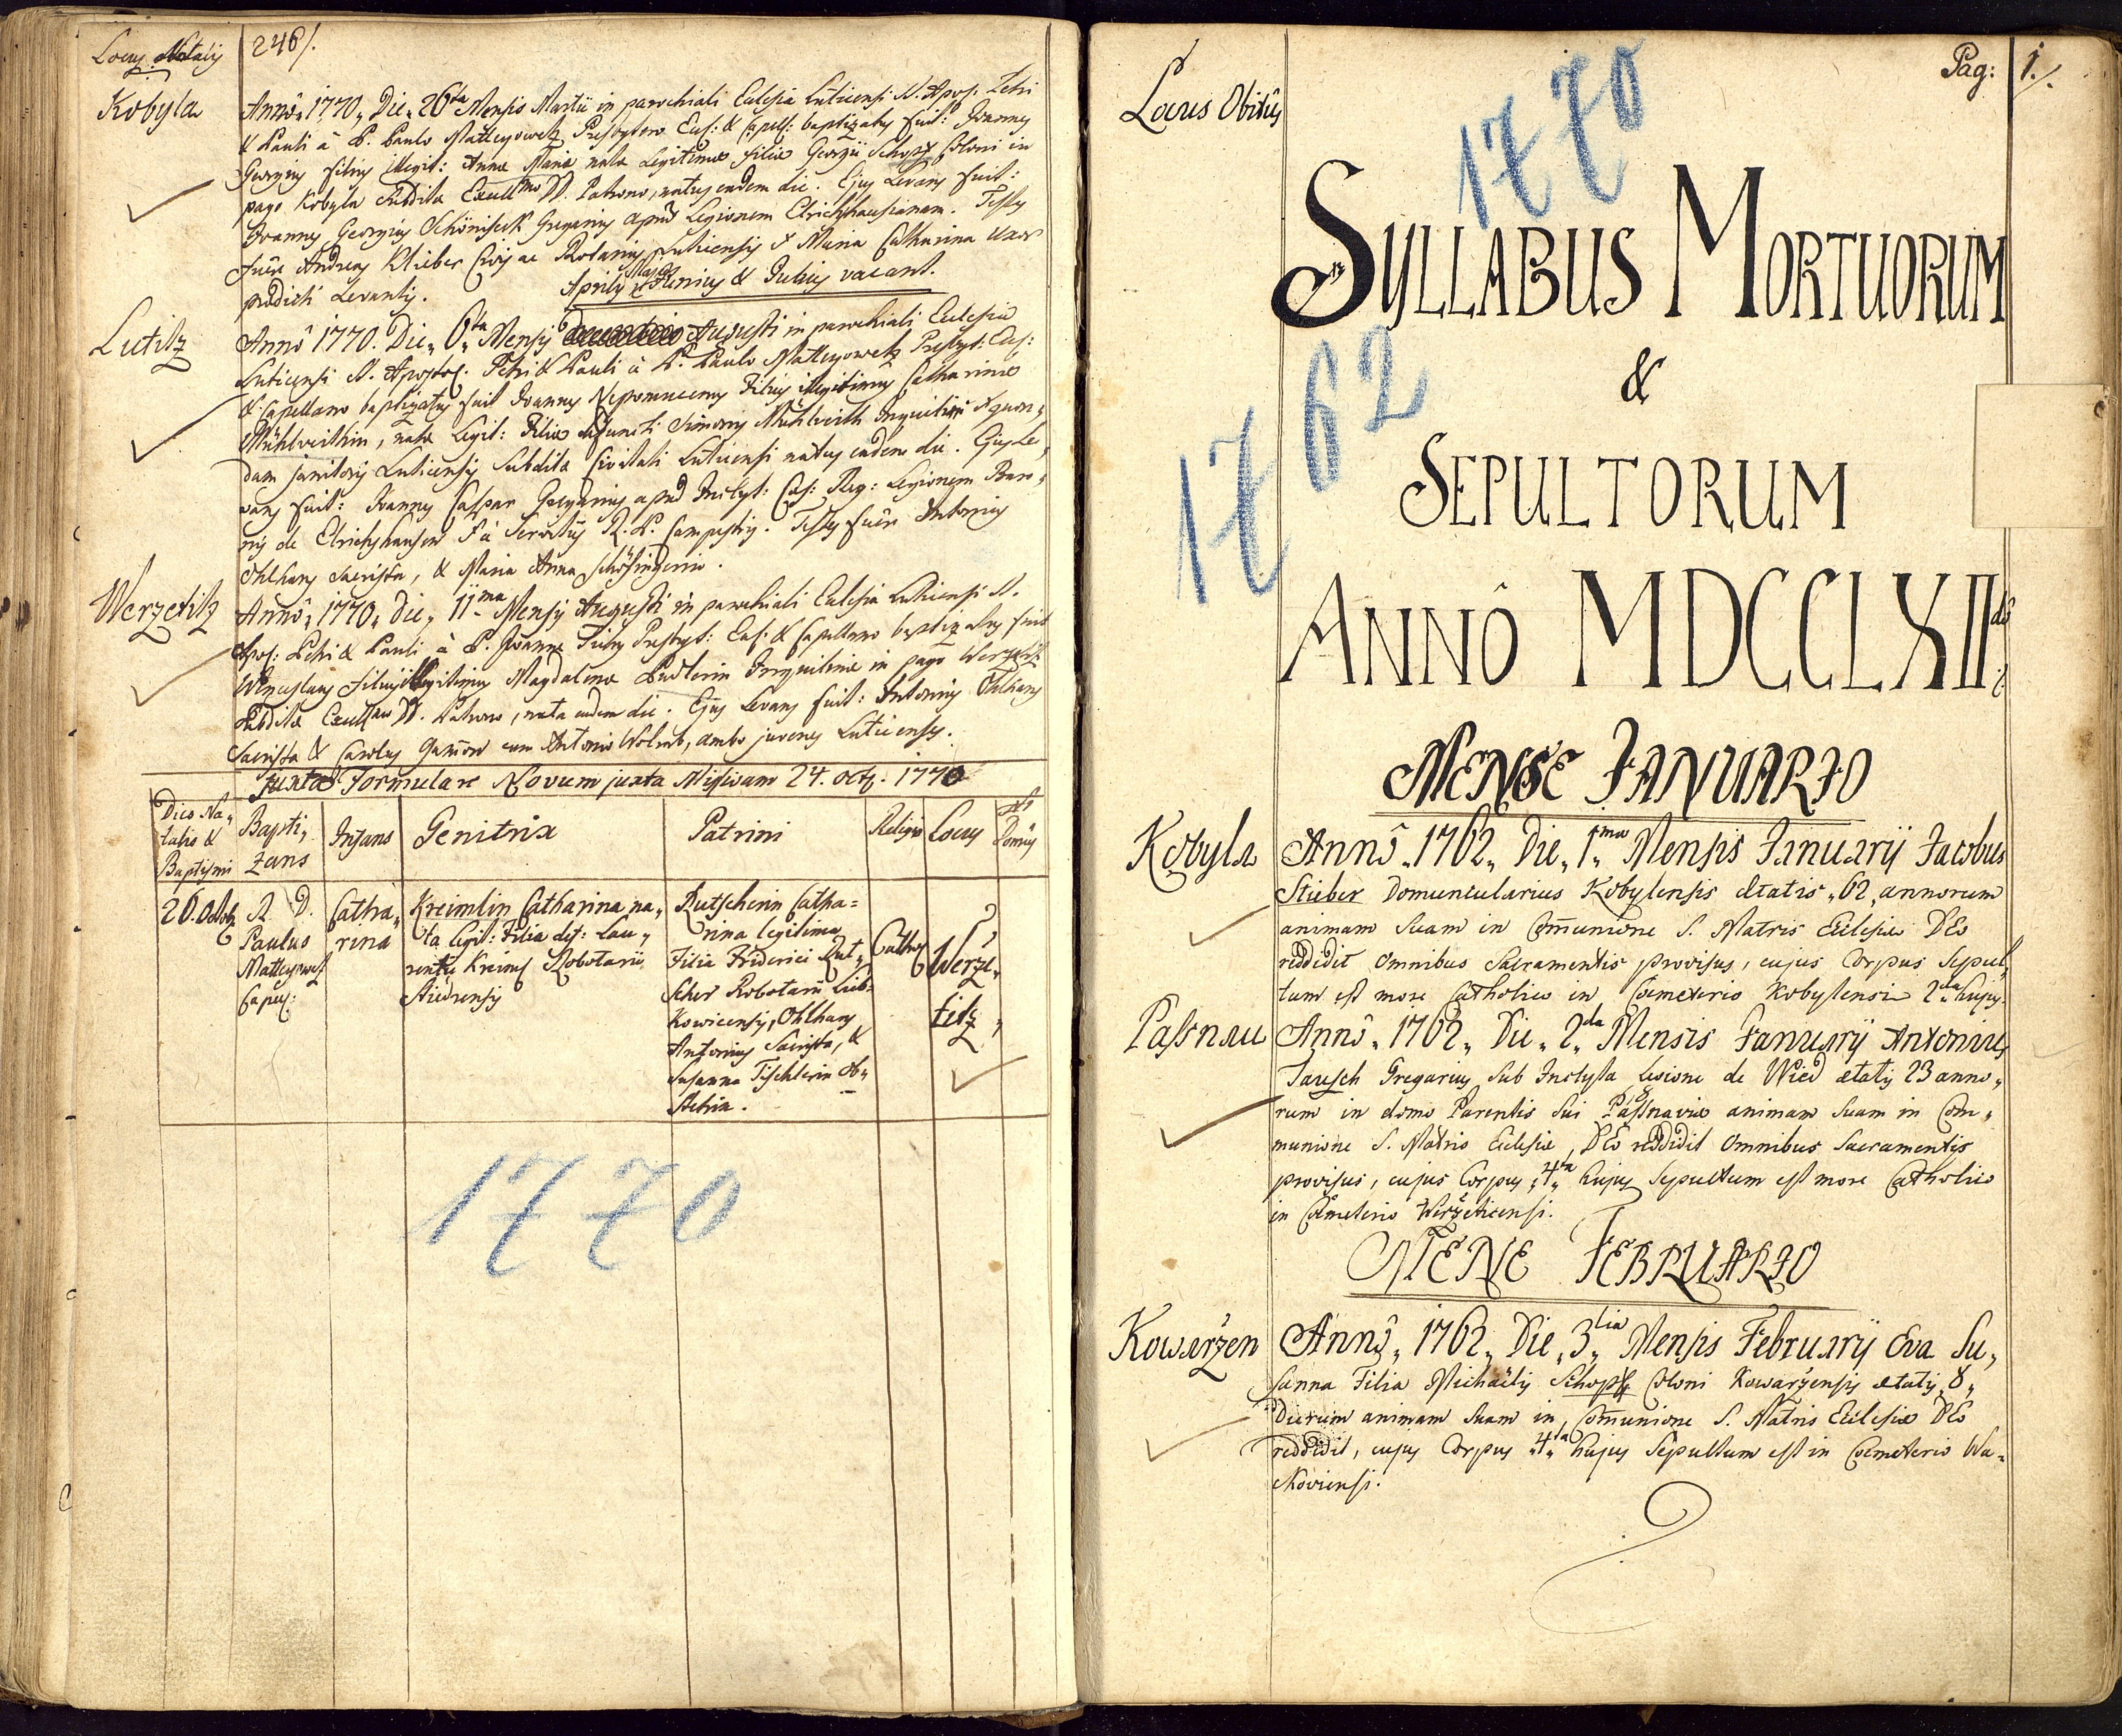 Locus Natalis
246/.
Kobyla
Anno 1770, Die 26ta Mensis Martii in parochiali Ecclesia Luticensi S. Apos: Petri
& Pauli à P. Paulo Matteyowetz Presbytero Cus: & Capell: baptizatus fuit: Joannes
Georgius filius illegit: Annæ Mariæ natæ Legitimæ filiæ Georgii Schopf Coloni in
pago Kobyla Subditæ Excell.mo DD. Patrono, natus eadem die. Ejus Levans fuit:
Joannes Georgius Schöniseck Gregarius apud Legionem Elrichshausianam. Testes
fuêre Andreas Klieber Civis ac Rotarius Luticensis & Maria Catharina Uxor
prædicti Levantis.
Aprilis Majus Junius & Julius vacant.
Lutitz
Anno 1770. Die 6ta Mensis Augusti in parochiali Ecclesia
Luticensi S. Apostol: Petri & Pauli à P. Paulo Matteyowetz Presbyt: Cus:
& Capellano baptizatus fuit Joannes Nepomucenus Filius illegitimus Catharinæ
Mühlveithin, natæ Legit: Filiæ defuncti Simonis Mühlveith Inquilini & quon,
dam janitoris Luticensis Subditæ Civitati Luticensi natus eadem die. Ejus Le,
vans fuit: Joannes Caspar Gregarius apud Inclyt: Cæs: Reg: Legionem Baro,
nis de Elrichshausen & à Servitiis R. P. Campestris. Testes fuêre Antonius
Ohlhans Sacrista, & Maria Anna
Werzetitz
Anno 1770, Die 11ma Mensis Augusti in parochiali Ecclesia Luticensi S.
Apos: Petri & Pauli à P. Joanne Presbyt: Cus: & Capellano baptizatus fuit
Wenceslaus Filius illegitimus Magdalenæ Inquilinæ in pago Werzetitz
Subditæ Excell.mo DD. Patrono, nata eadem die. Ejus Levans fuit: Antonius Ohlhans
Sacrista & Carolus cum Antonio Wolrab, ambo juvenes Luticenses.
Juxta Formulare Novum juxta Missivam 24. octb. 1770
Dies Na,
talis &
Baptismi
Bapti,
zans
Infans
Genitrix
Patrini
Religio
Locus
Nr
Domus
26. Octob
R. D.
Paulus
Matteyowetz
Capell:
Catha,
rina
Kreimlin Catharina na,
ta legit: Filia def: Lau,
rentii Kreiml Robotarii
Rutscherin Catha=
rina legitima
Filia Friderici Rut,
scher Robotarii Lub=
kowicensis, Ohlhans
Antonius Sacrista, &
Susanna Tischlerin Ob,
stetrix.
Cathol
Werze,
titz,
1770
Locus Obitûs
Pag: 1./.
1770
SYLLABUS MORTUORUM
&
1762
SEPULTORUM
ANNÔ MDCCLXIIdô
MENSE JANUARIO
Kobyla
Annô 1762, Die 1ma Mensis Januarij Jacobus
Stieber Domuncularius Kobylensis ætatis 62 annorum
animam suam in Comunione S. Matris Ecclesiæ DEo
reddidit omnibus Sacramentis provisus, cujus Corpus Sepul,
tum est more Catholico in Cœmeterio Kobylensi 2da hujus.
Passnau
Annô 1762, Die 2da Mensis Januarij Antonius
Tausch Gregarius sub Inclyta Legione de Wied ætatis 23 anno,
rum in domo Parentis sui Passnaviæ animam suam in Com,
munione S. Matris Ecclesiæ, DEo reddidit omnibus Sacramentis
provisus, cujus Corpus 4ta hujus Sepultum est more Catholico
in Cœmeterio Werzeticensi.
MENE FEBRUARIO
Kowaržen
Annô 1762, Die 3tia Mensis Februarij Eva Su,
sanna Filia Michaëlis Schopf Coloni Kowaržensis ætatis 8,
Dierum animam suam in Comunione S. Matris Ecclesiæ DEo
reddidit, cujus Corpus 4ta hujus Sepultum est in Cœmeterio Wa=